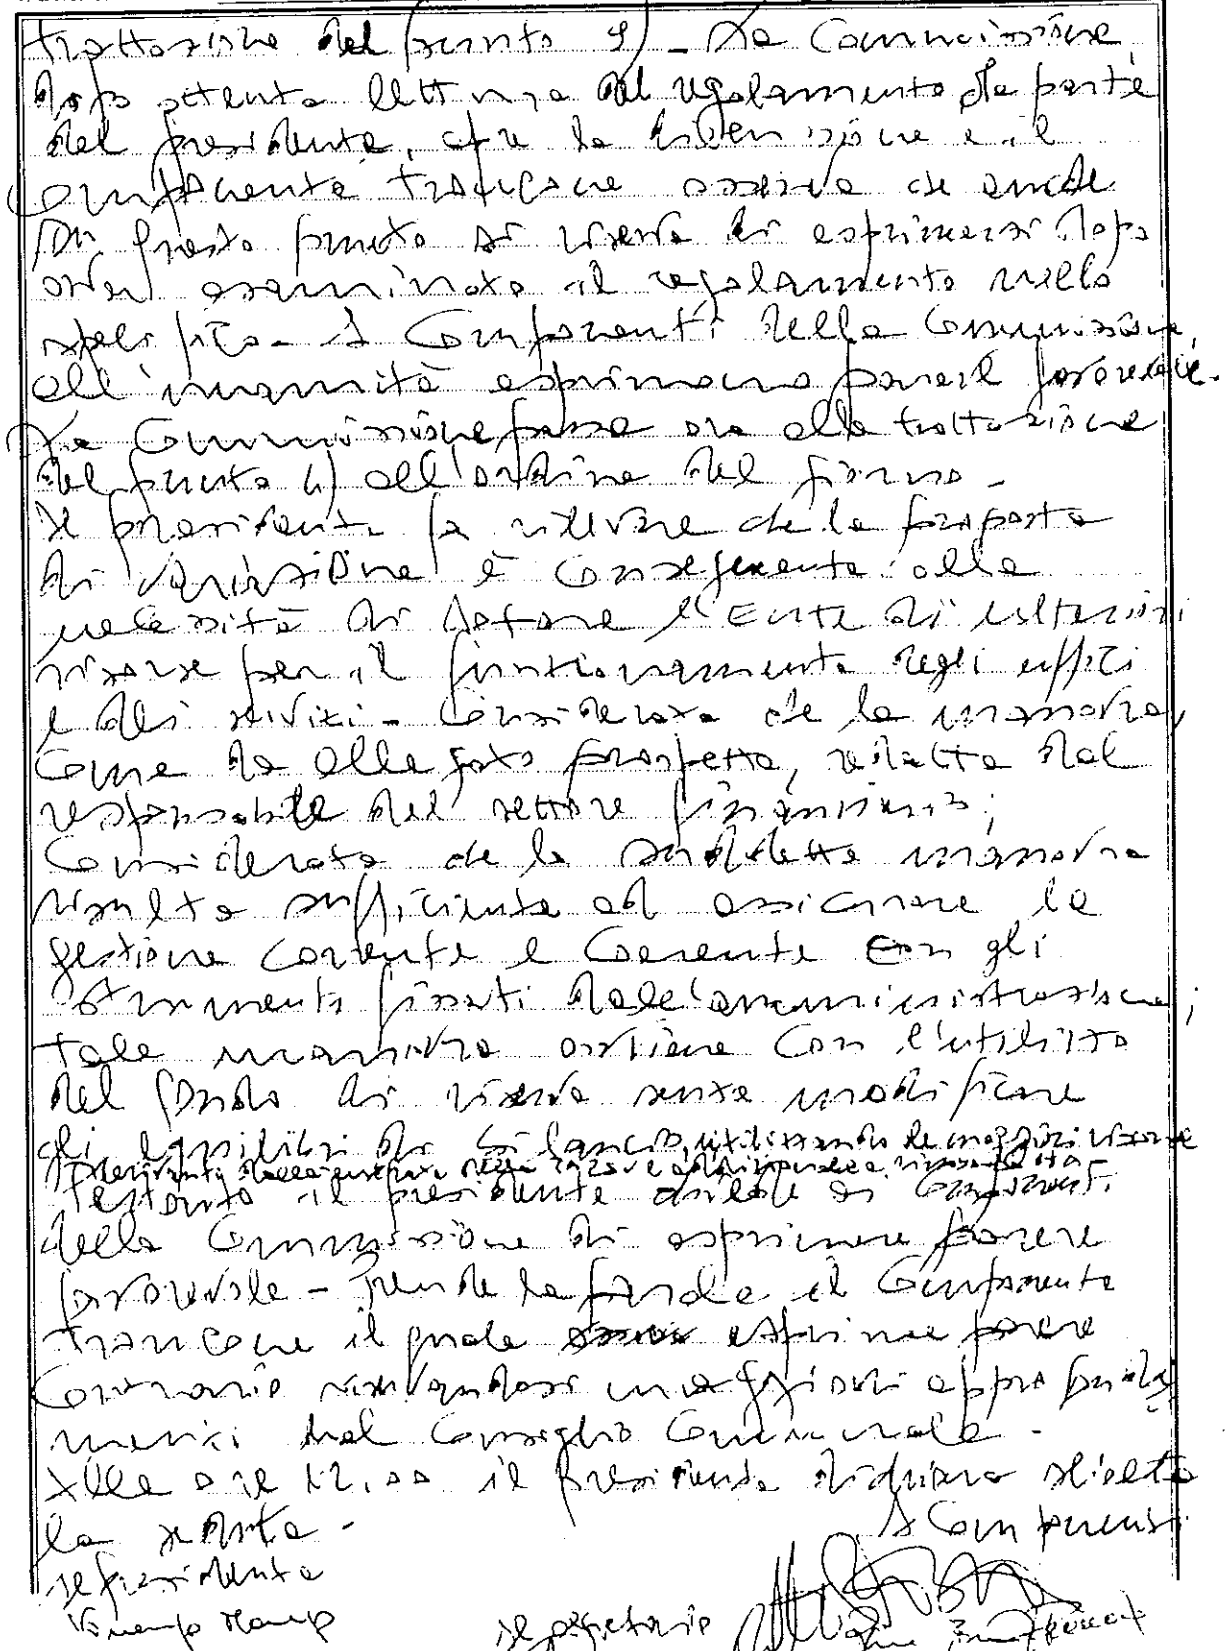 trattazione del punto 3) - La Commissione
dopo attenta lettura del regolamento da parte
del presidente, apre la discussione e il
componente Trancone osserva che anche
su questo punto si riserva di esprimersi dopo
aver esaminato il regolamento nello
specifico - I Componenti della Commissione,
all'unanimità esprimono parere favorevole.
La Commissione passa ora alla trattazione
del punto 4) all'ordine del giorno -
Il presidente fa rilevare che la proposta
di variazione è conseguente alla
necessità di dotare l'Ente di ulteriori
risorse per il funzionamento degli uffici
e dei servizi - Considerato che la manovra,
come da allegato prospetto, redatto dal
responsabile del settore finanziario;
Considerato che la suddetta manovra
risulta sufficiente ad assicurare la
gestione corrente e coerente con gli
strumenti fissati dall'amministrazione;
tale manovra avviene con l'utilizzo
del fondo di riserva senza modificare
gli equilibri di bilancio, utilizzando le maggiori risorse
provenienti dalle entrate della
Pertanto il presidente chiede ai Componenti
della Commissione di esprimere parere
favorevole - Prende la parola il Componente
Trancone il quale esprime parere
contrario riservandosi maggiori approfondi
menti nel Consiglio Comunale -
Alle ore 12,00 il presidente dichiara sciolta
la seduta -
I Componenti
Il presidente
Il segretario